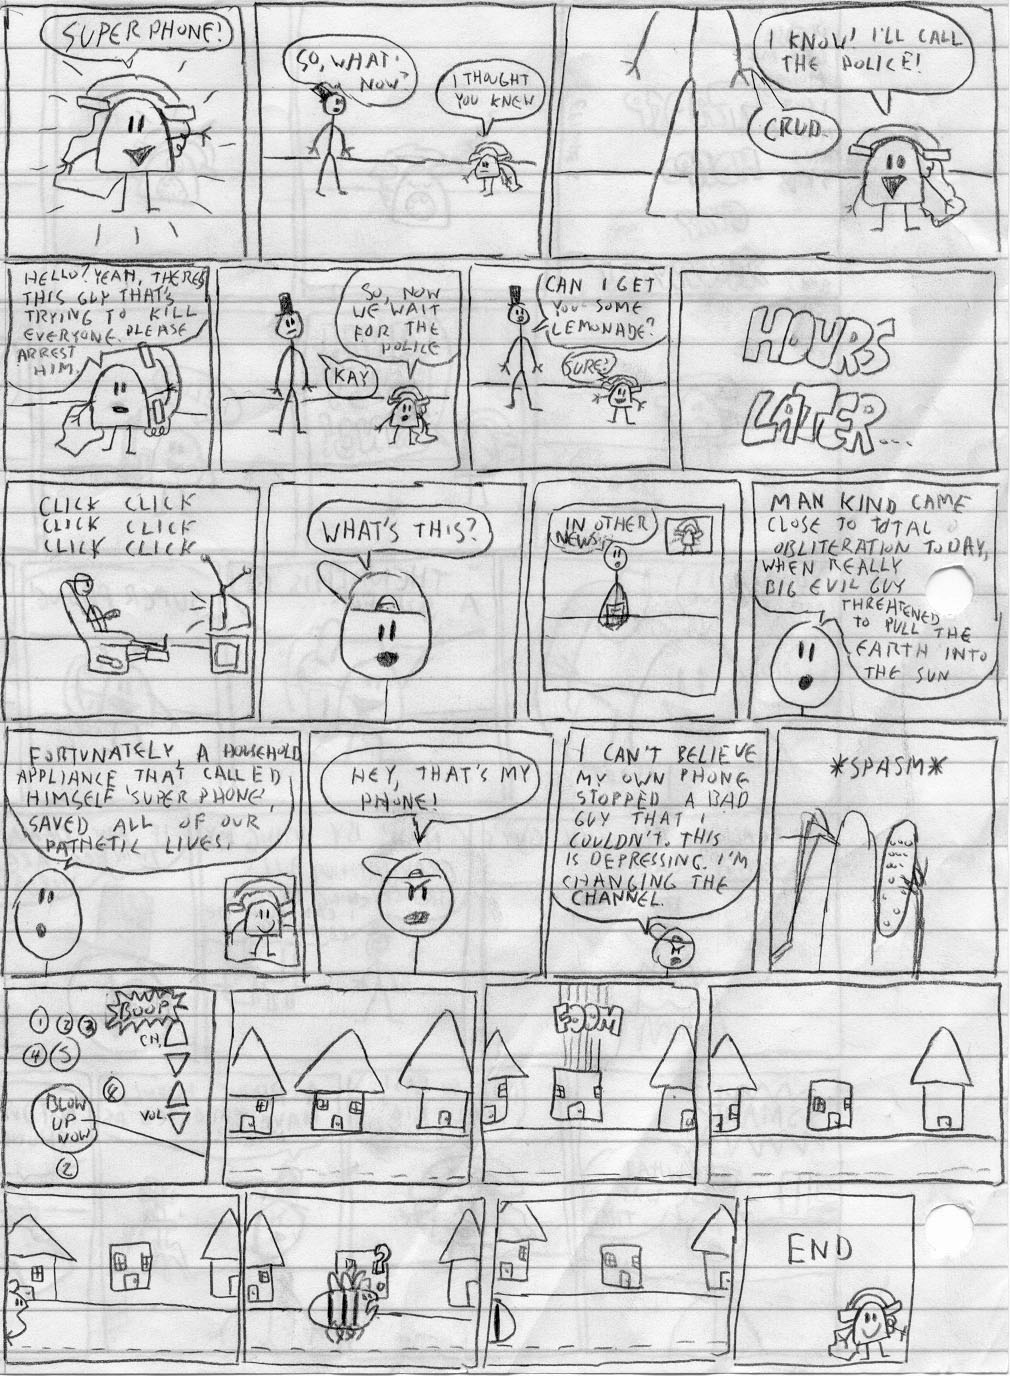 SUPER PHONE!
SO, WHAT
NOW?
I THOUGHT
YOU KNEW
I KNOW! I'LL CALL
THE POLICE!
CRUD.
HELLO? YEAH, THERES
THIS GUY THAT'S
TRYING TO KILL
EVERYONE. PLEASE
ARREST
HIM.
KAY
SO, NOW
WE WAIT
FOR THE
POLICE
CAN I GET
YOU SOME
LEMONADE?
SURE!
HOURS
LATER...
CLICK CLICK
CLICK CLICK
CLICK CLICK
WHAT'S THIS?
IN OTHER
NEWS...
MAN KIND CAME
CLOSE TO TOTAL
OBLITERATION TODAY,
WHEN REALLY
BIG EVIL GUY
THREATENED
TO PULL THE
EARTH INTO
THE SUN
FORTUNATELY, A HOUSEHOLD
APPLIANCE THAT CALLED
HIMSELF 'SUPER PHONE',
SAVED ALL OF OUR
PATHETIC LIVES.
HEY, THAT'S MY
PHONE!
I CAN'T BELIEVE
MY OWN PHONE
STOPPED A BAD
GUY THAT I
COULDN'T. THIS
IS DEPRESSING. I'M
CHANGING THE
CHANNEL.
*SPASM*
BOOP
1 2 3
CH.
4 5
6
BLOW
UP
NOW
VOL
2
FOOM
?
END